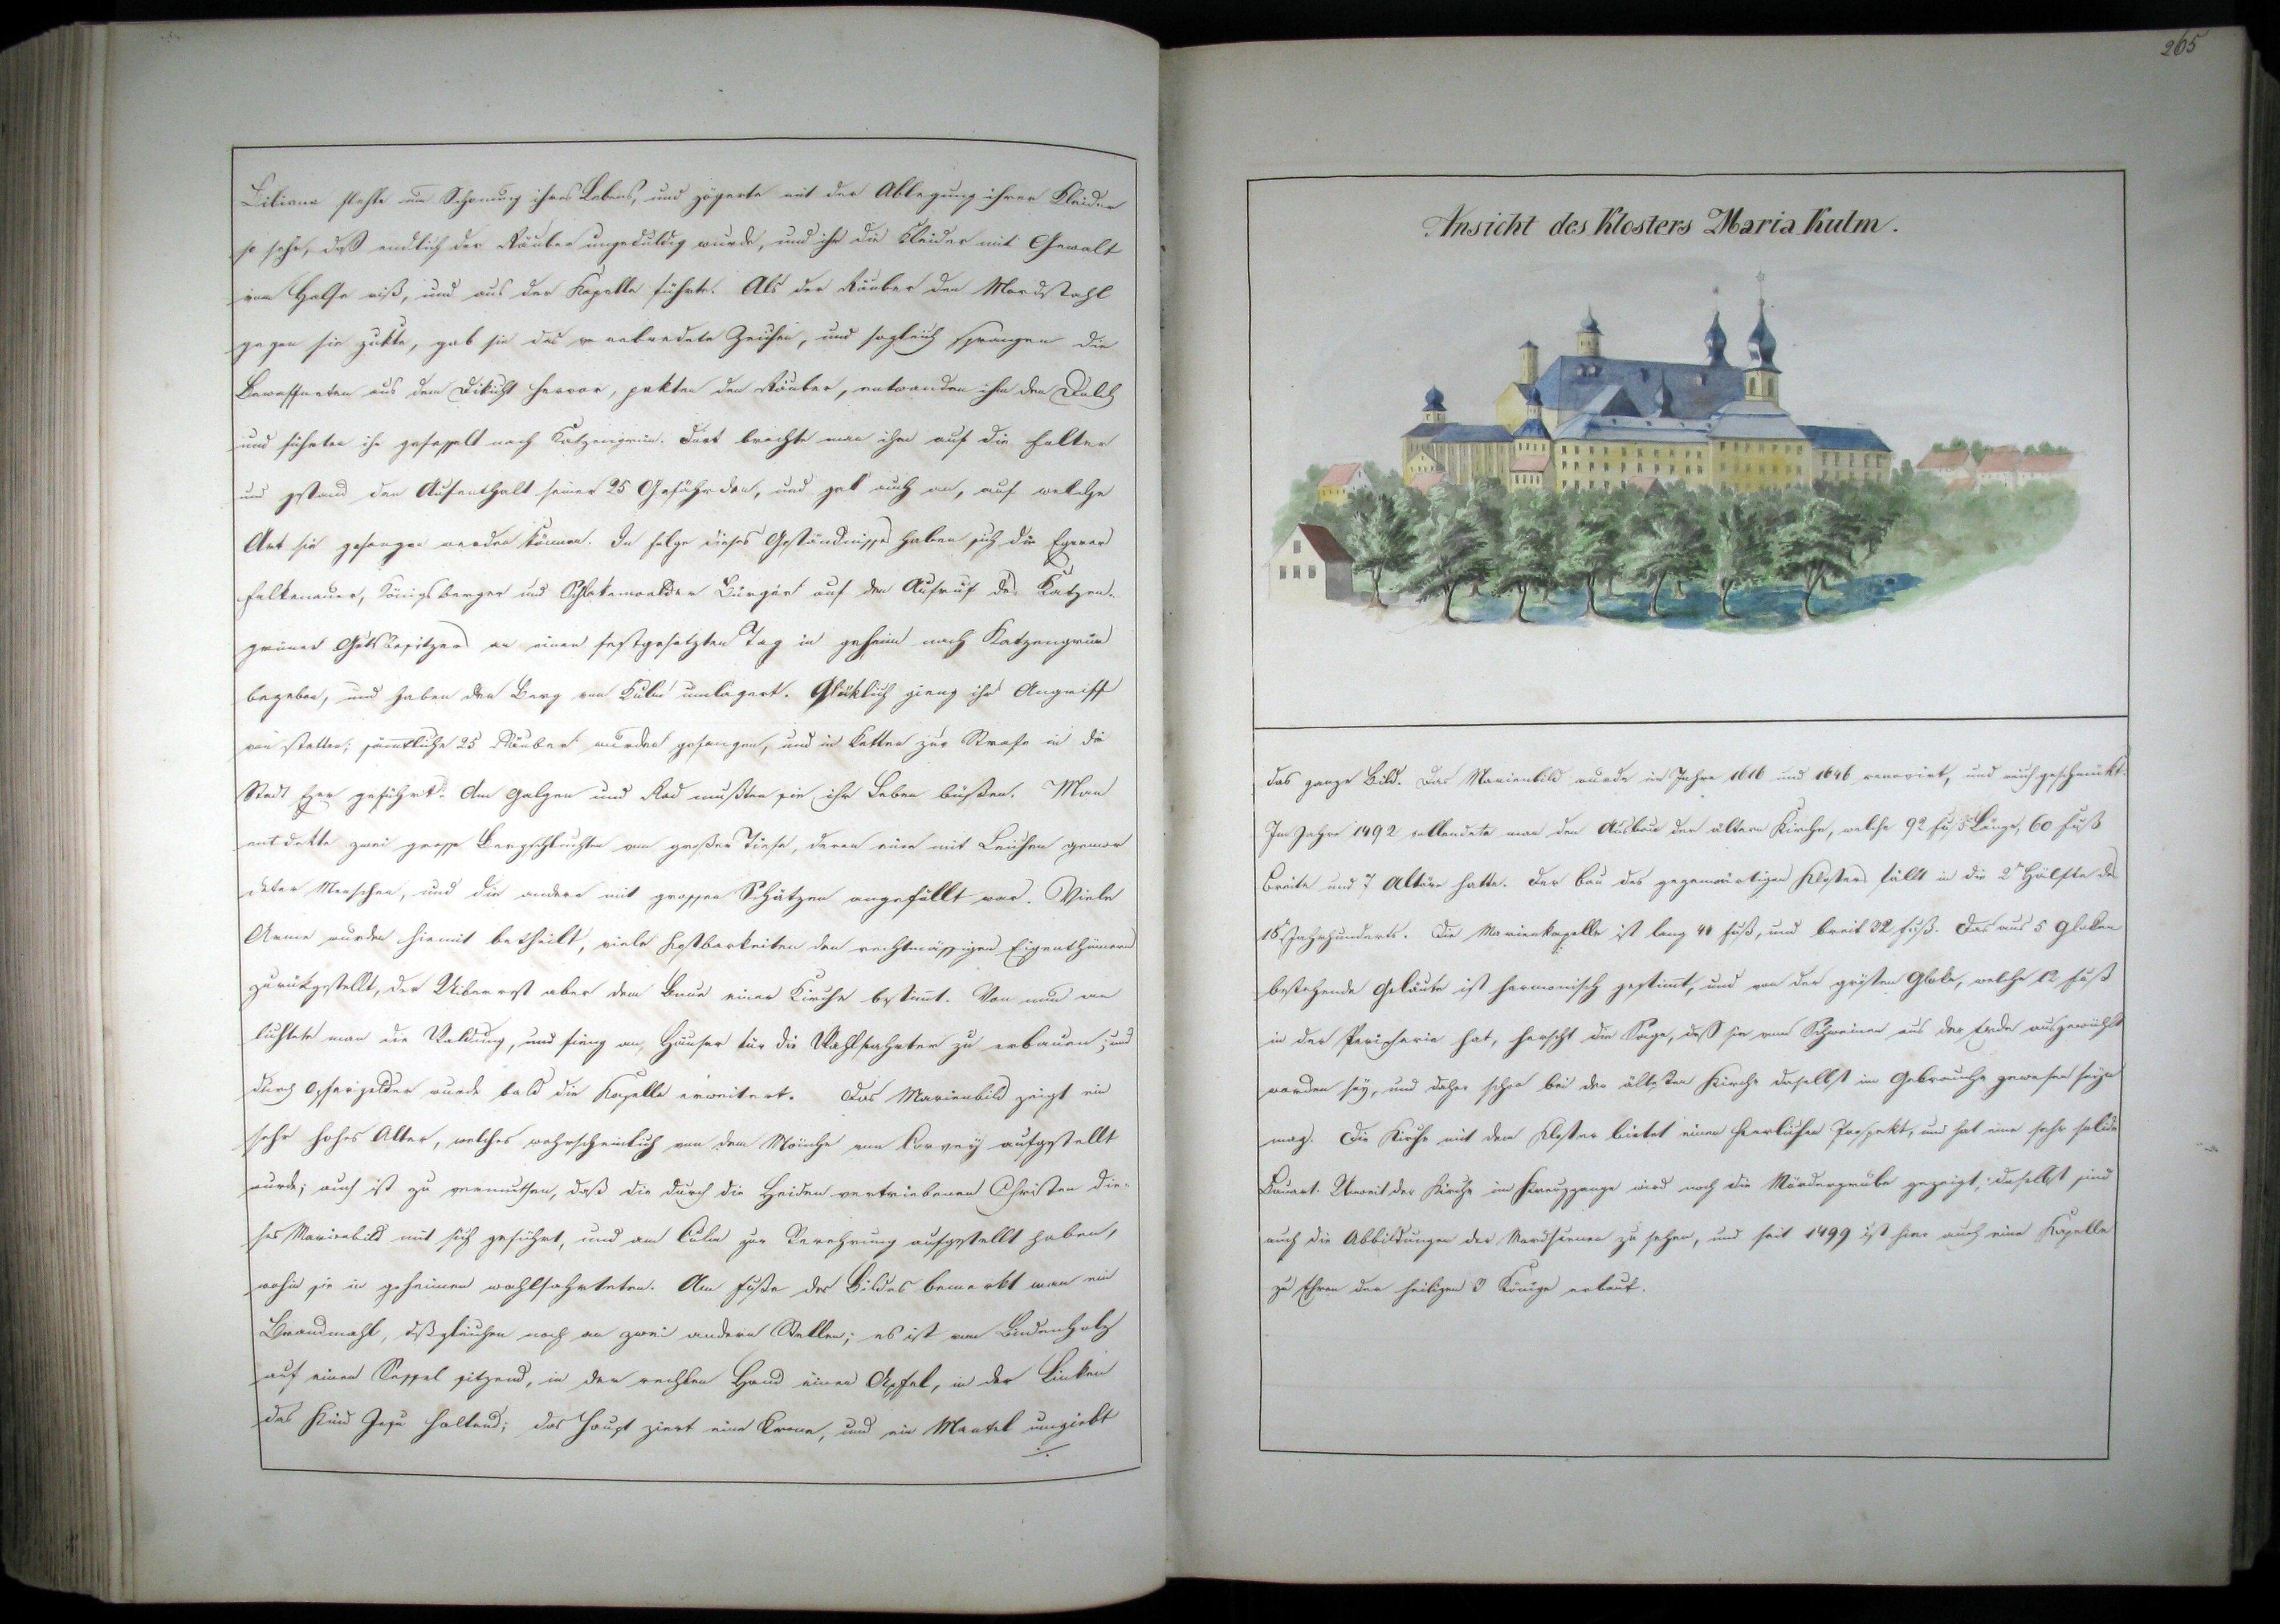 Liliana flehte um Schonung ihres Lebens, und zögerte mit der Ablegung ihrer Kleider
so sehr, daß endlich der Räuber ungeduldig wurde, und ihr die Kleider mit Gewalt
vom Halse riß, und aus der Kapelle führte. Als der Räuber den Mordstahl
gegen sie zukte, gab sie das verabredete Zeichen, und sogleich sprangen die
Bewaffneten aus dem Dikicht hervor, pakten den Räuber, entwanden ihm den Dolch
und führten ihn gefesselt nach Katzengrün. Dort brachte man ihn auf die Folter
und gestand den Aufenthalt seiner 25 Gefährden, und gab auch an, auf welche
Art sie gefangen werden können. In Folge dieses Geständnisses haben sich die Egerer
Falkenauer, Königsberger und Schlakenwalder Bürger auf den Aufruf des Katzen-
grüner Gutsbesitzers an einen festgesetzten Tag in geheim nach Katzengrün
begeben, und haben den Berg von Kulm umlagert. Glüklich gieng ihr Angriff
von statten; sämtliche 25 Räuber wurden gefangen, und in Ketten zur Strafe in die
Stadt Eger geführt. Am Galgen und Rad mußten sie ihr Leben büßen. Man
entdekte zwei grosse Bergschluchten von großer Tiefe, deren eine mit Leichen gemor
deter Menschen, und die andere mit grossen Schätzen angefüllt war. Viele
Arme wurden hiemit betheilt, viele Kostbarkeiten den rechtmässigen Eigenthümern
zurükgestellt, der Uiberrest aber dem Baue einer Kirche bestimt. Von nun an
lichtete man die Waldung, und fieng an, Häuser für die Wahlfahrter zu erbauen; und
durch Opfergelder wurde bald die Kapelle erweitert. Das Marienbild zeigt ein
sehr hohes Alter, welches wahrscheinlich von dem Mönche von Corvey aufgestellt
wurde; auch ist zu vermuthen, daß die durch die Heiden vertriebenen Christen die-
ses Marienbild mit sich geführt, und am Culm zur Verehrung aufgestellt haben,
wohin sie in geheimen wahlfahrteten. Am Fuße des Bildes bemerkt man ein
Brandmahl, deßgleichen noch an zwei andern Stellen; es ist von Lindenholz
auf einen Sessel sitzend, in der rechten Hand einen Apfel, in der Linken
das Kind Jesu haltend; das Haupt ziert eine Krone, und ein Mantel umgiebt
./.
265
Ansicht des Klosters Maria Kulm.
das ganze Bild. Das Marienbild wurde im Jahre 1616 und 1646 renovirt, und neu geschmükt.
Im Jahre 1492 vollendete man den Ausbau der ältern Kirche, welche 92 Fuß Länge, 60 Fuß
Breite und 7 Altäre hatte. Der Bau des gegenwärtigen Klosters fällt in die 2te Hälfte des
18 Jahrhunderts. Die Marienkapelle ist lang 40 Fuß, und breit 32 Fuß. Das aus 5 Gloken
bestehende Geläute ist harmonisch gestimt, und von der grösten Gloke, welche 12 Fuß
in der Peripherie hat, herscht die Sage, daß sie vom Schweinen aus der Erde ausgewühlt
worden sey, und daher schon bei der ältesten Kirche daselbst im Gebrauche gewesen seyn
mag. Die Kirche mit dem Kloster bietet einen herrlichen Prospekt, und hat eine sehr solide
Bauart. Unweit der Kirche im Kreuzgange wird noch die Mördergrube gezeigt, daselbst sind
auch die Abbildungen der Mordscenen zu sehen, und seit 1499 ist hier auch eine Kapelle
zu Ehren der heiligen 3 Könige erbaut.